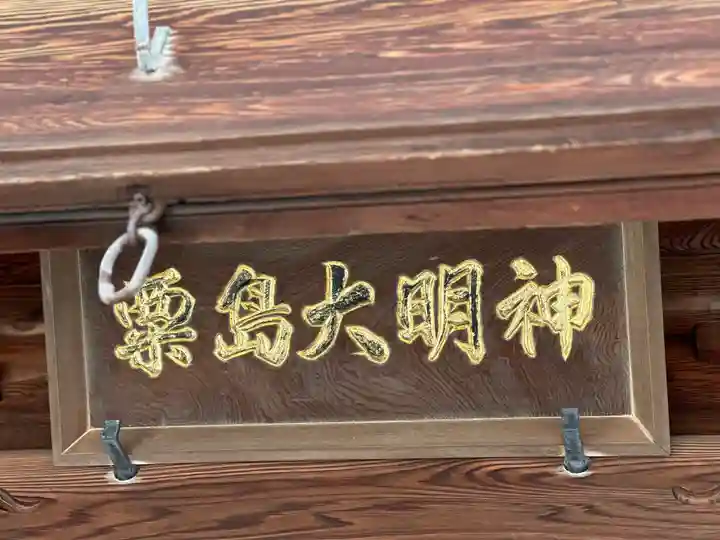 粟島大明神